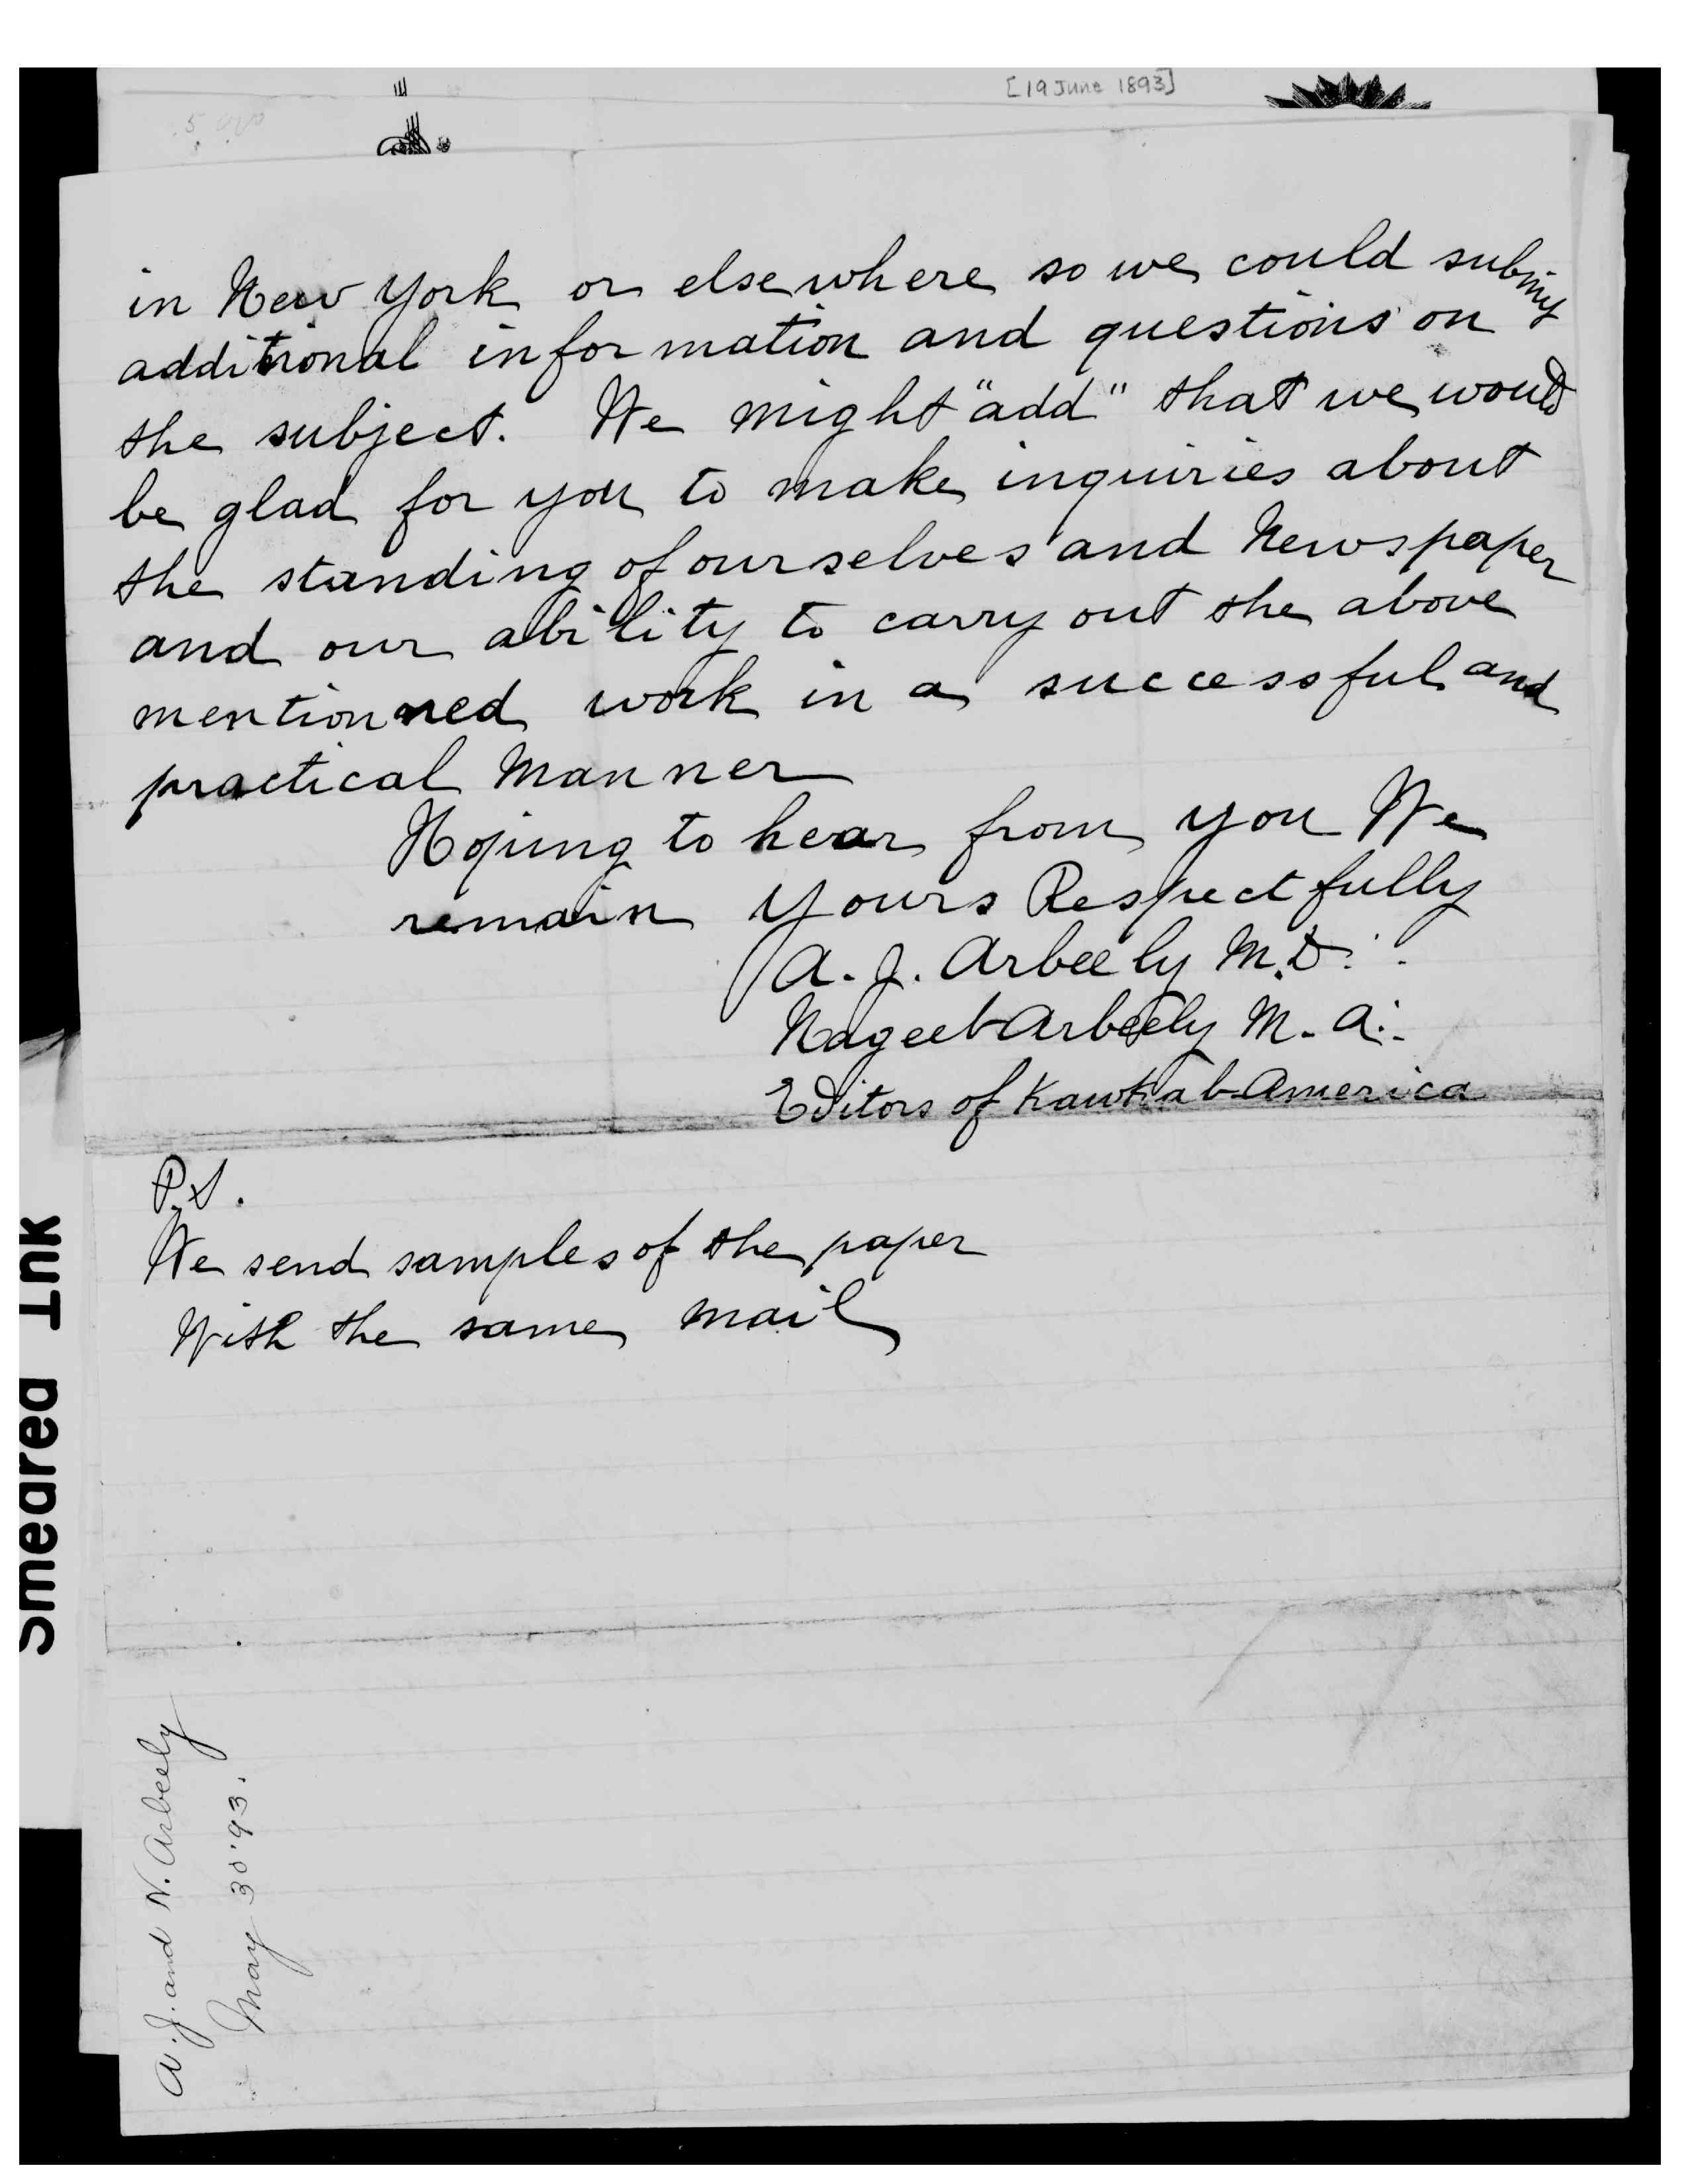 [19 June 1893]
in New York or elsewhere so we could submit
additional information and questions on
the subject. We might "add" that we would
be glad for you to make inquiries about
the standing of ourselves and Newspaper
and our ability to carry out the above
mentionned work in a successful and
practical Manner
Hoping to hear from you We
remain Yours Respectfully
A. J. Arbeely M.D.
Nageeb Arbeely M. A.
Editors of Kawkab America
P.S.
We send samples of the paper
With the same mail
Smeared Ink
A. J. and N. Arbeely
May 30 '93.